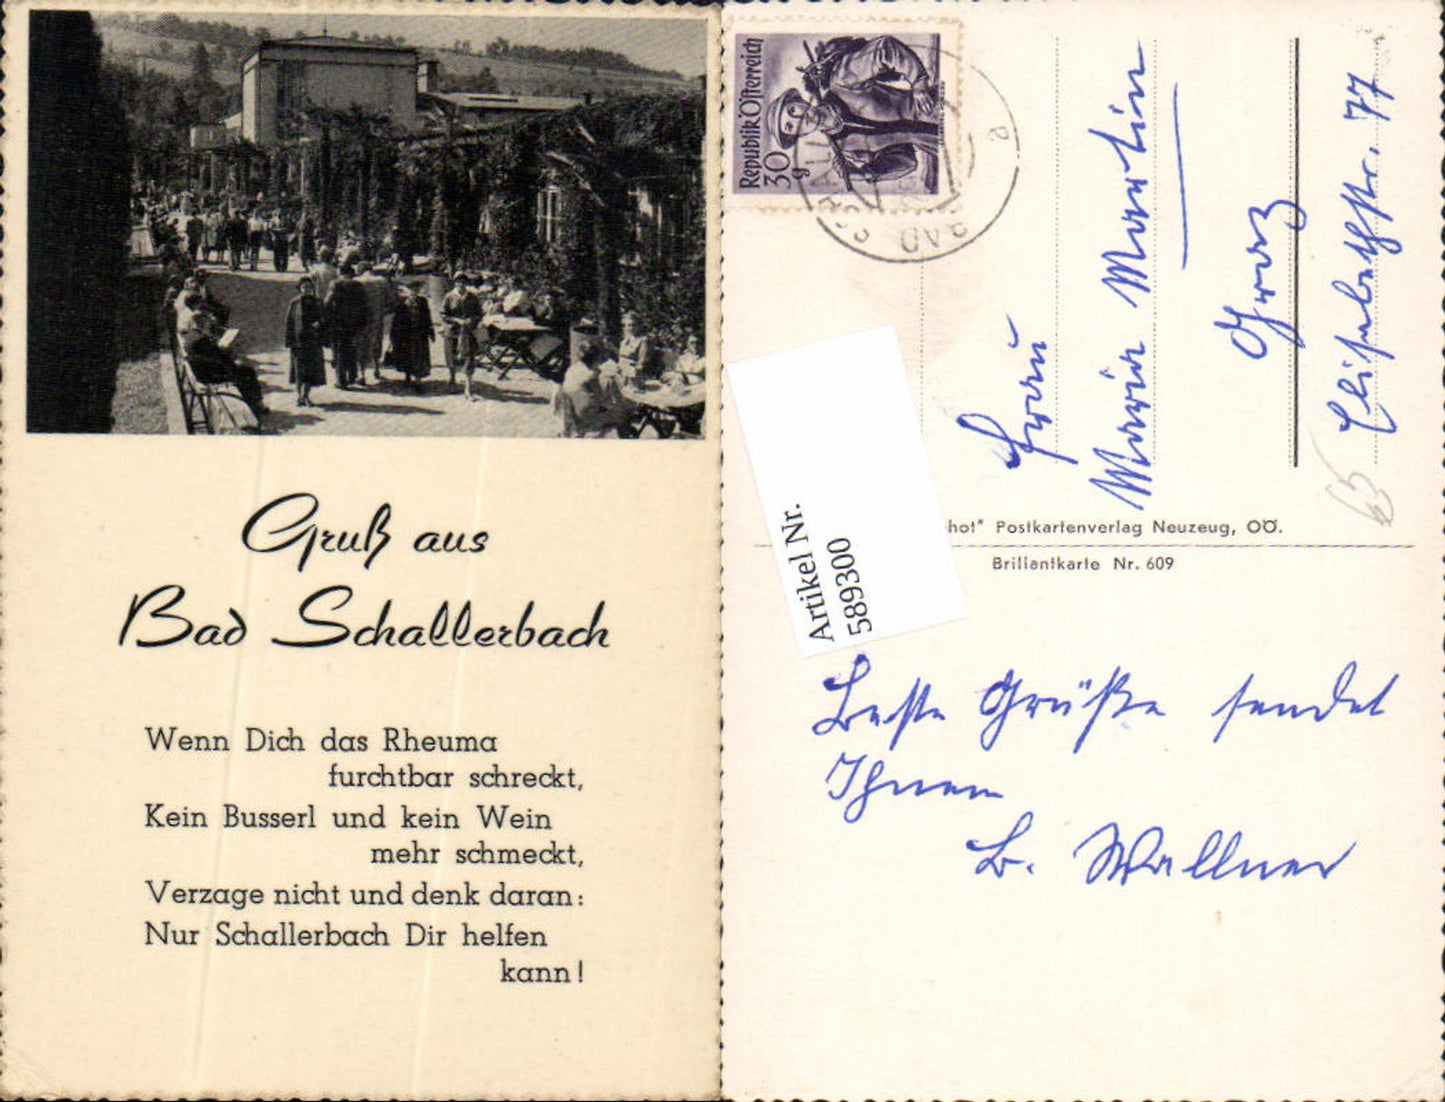 Gruß aus
Bad Schallerbach
Wenn Dich das Rheuma
furchtbar schreckt,
Kein Busserl und kein Wein
mehr schmeckt,
Verzage nicht und denk daran:
Nur Schallerbach Dir helfen
kann!
Republik Österreich
30 g
BAD SCHA
a
Frau
Maria Martin
Graz
Elisabethstr. 77
65
hot" Postkartenverlag Neuzeug, OÖ.
Brillantkarte Nr. 609
Artikel Nr.
589300
Beste Grüße sendet
Ihnen
B. Wallner